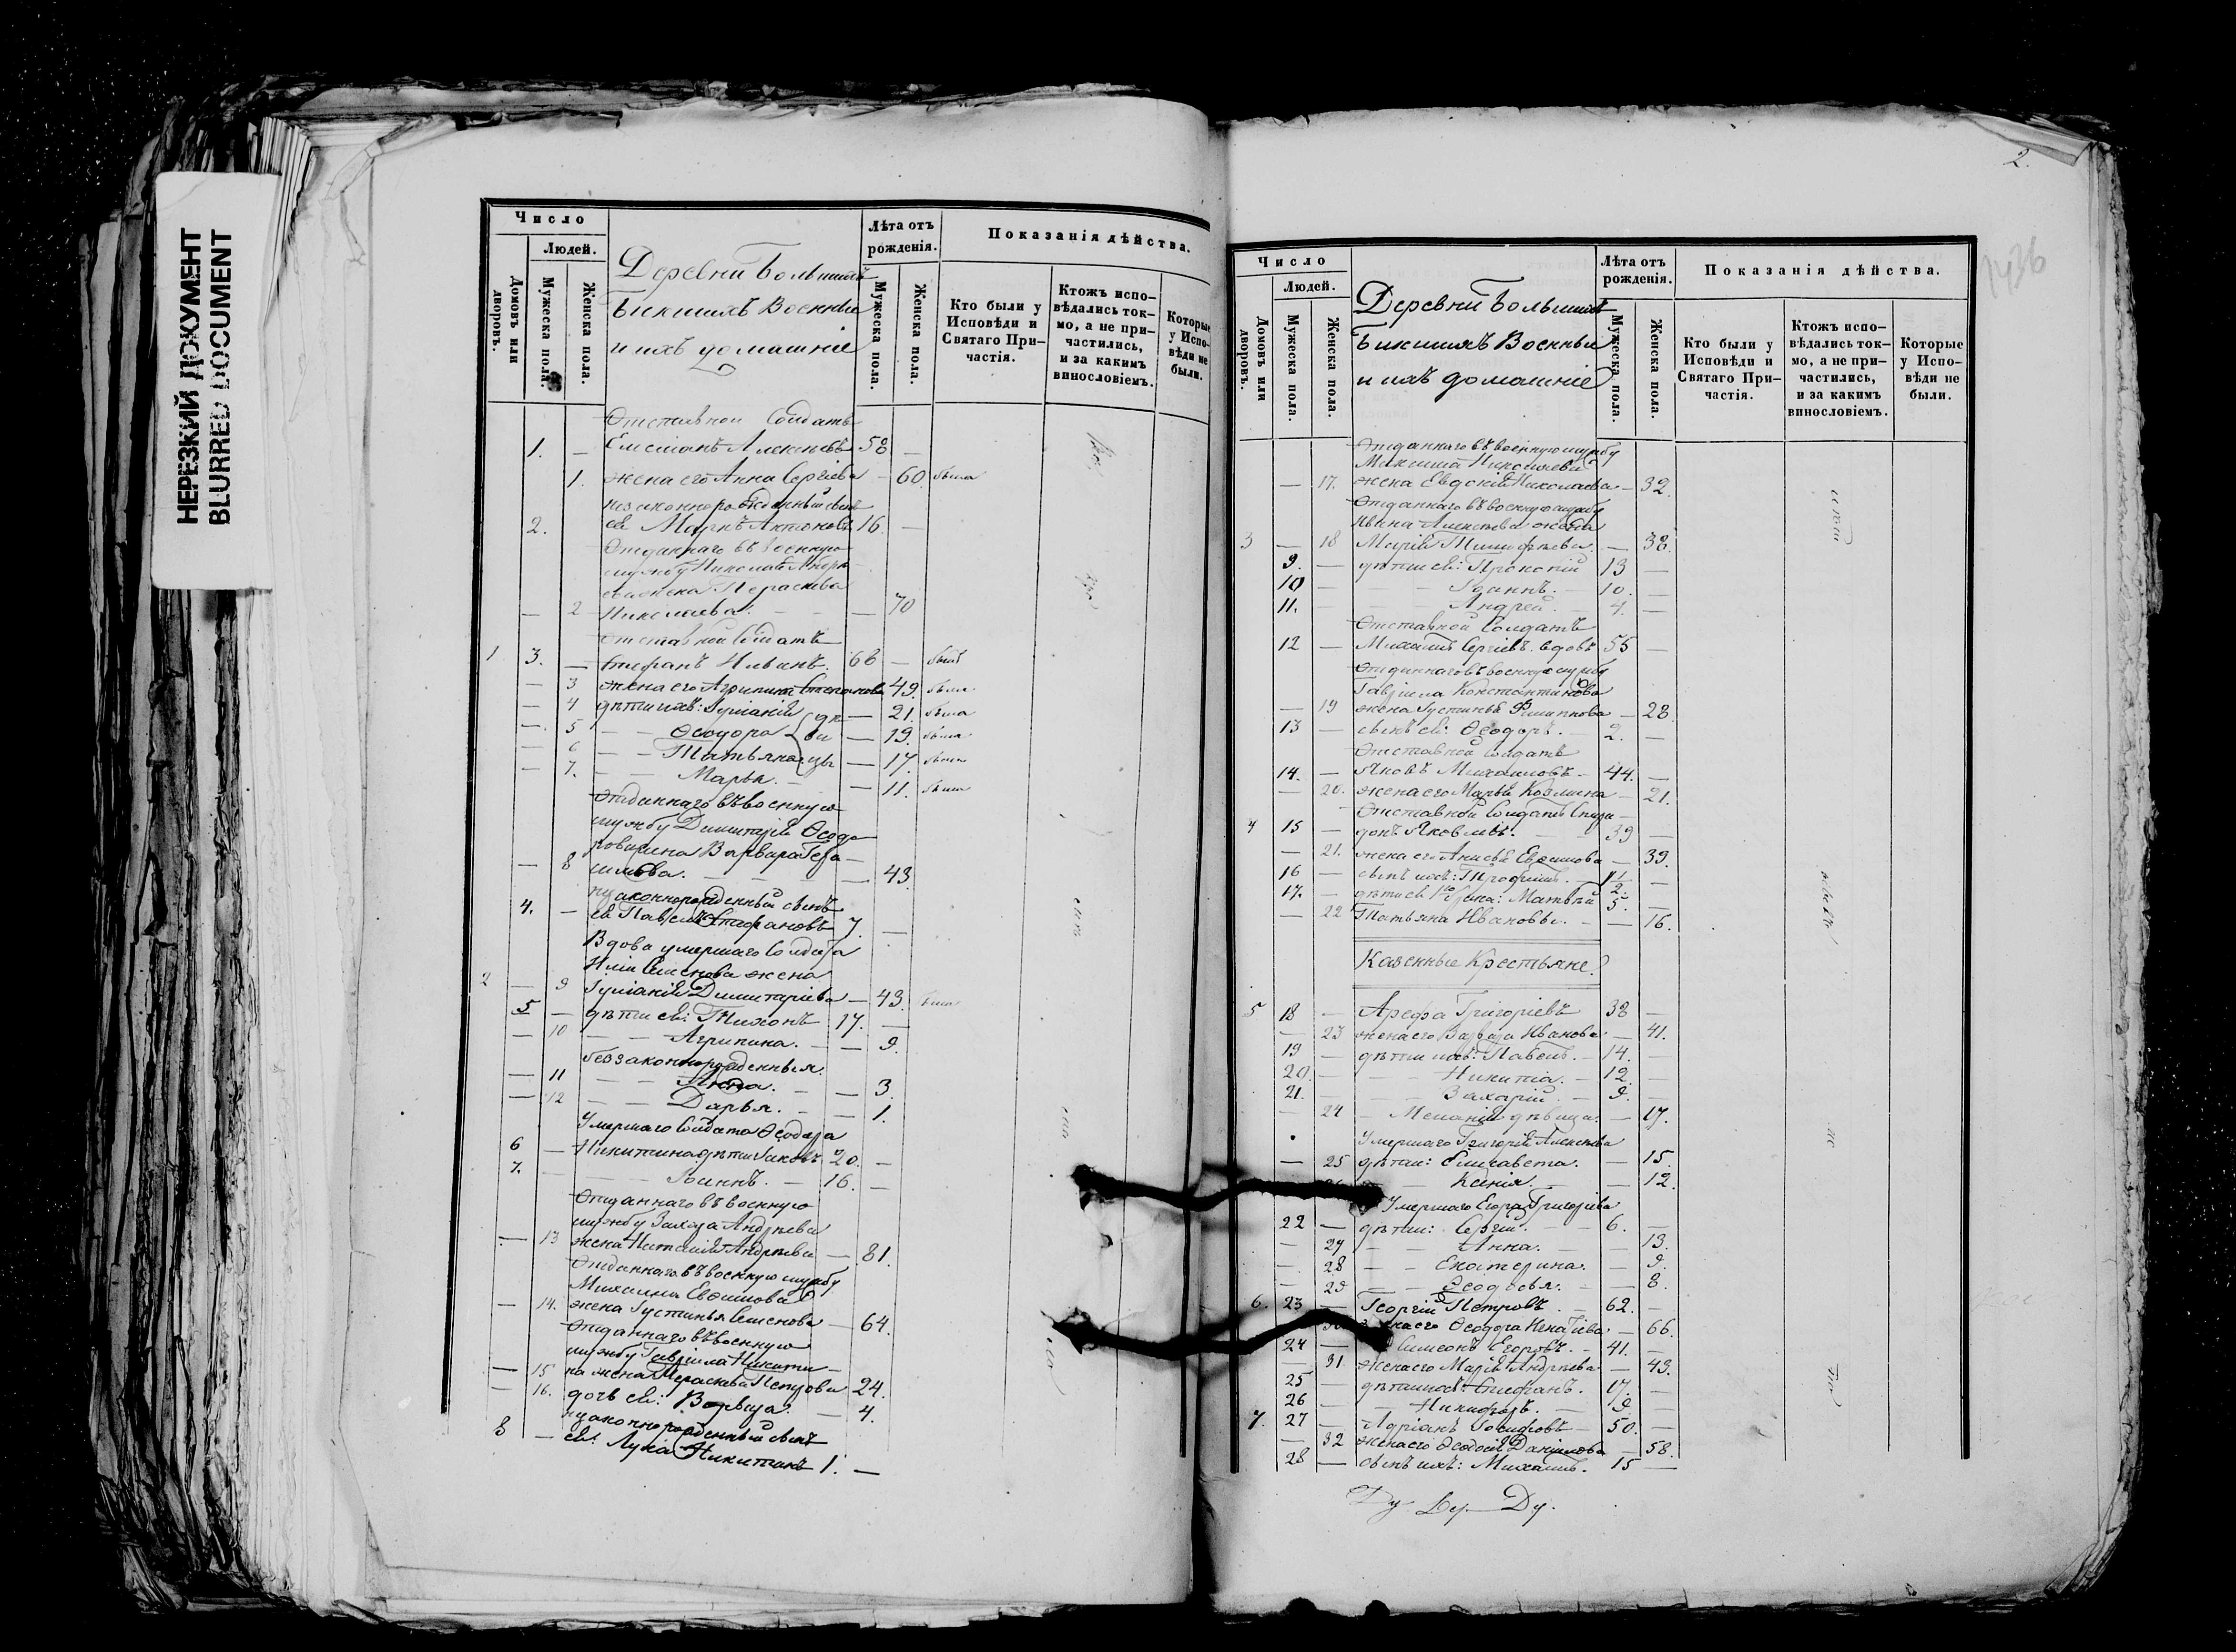 НЕРЕЗКИЙ ДОКУМЕНТ
BLURRED DOCUMENT
Число
Людей.
Домовъ или дворовъ.
Мужеска пола.
Женска пола.
Деревни Большихъ
Бикшихъ Военные
и ихъ домашніе
Лѣта отъ рожденія.
Мужеска пола.
Женска пола.
Показанія дѣйства.
Кто были у Исповѣди и Святаго Причастія.
Ктожъ исповѣдались токмо, а не причастились, и за какимъ винословіемъ.
Которые у Исповѣди не были.
Отставной Солдатъ
1. — Емеліанъ Алексѣевъ 58 —
1. жена его Анна Сергіева — 60. была
незаконнорожденный сынъ
2. ея Антоновъ 16. —
Отданнаго въ военную
службу Николая
жена Параскева
— 2 Николаева. — 70
отставной Солдатъ
1 3. — Стефанъ Ильинъ. 66 — былъ
— 3 жена его Агрипина Степанова 49. была
— 4 дѣти ихъ: Іуліанія — 21. была
— 5 — Ѳеодора — 19. была
— 6 — Татьяна — 17. была
— 7. — Марья. — 11. была
Отданнаго въ военную
службу Димитрія Ѳеодо
рова жена Варвара Гера
— 8 симова. — 43
незаконнорожденный сынъ
4. — ея Павелъ Стефановъ 7. —
Вдова умершаго Солдата
Иліи Семенова жена
2 — 9 Іуліанія Димитріева — 43. была
5 — дѣти ея: Тихонъ 17. —
— 10 — Агрипина. — 9.
беззаконнорожденныя
— 11 — Анна. — 3.
— 12 — Дарья. — 1.
Умершаго Солдата Ѳеодора
6 — Никитина дѣти: Іаковъ 20. —
7. — Іоаннъ. — 16. —
Отданнаго въ военную
службу Захара Андреева
— 13 жена Наталія Андреева — 81.
Отданнаго въ военную службу
Михаила Евфимова
— 14. жена Іустинья Семенова — 64.
Отданнаго въ военную
службу Гавріила Никити—
— 15 на жена Параскева Петрова 24.
— 16. дочь ея: Варвара. — 4.
незаконнорожденный сынъ
8 — ея: Лука Никитинъ 1. —
2.
1436
Число
Людей.
Домовъ или дворовъ.
Мужеска пола.
Женска пола.
Деревни Большихъ
Бикшихъ Военные
и ихъ домашніе
Лѣта отъ рожденія.
Мужеска пола.
Женска пола.
Показанія дѣйства.
Кто были у Исповѣди и Святаго Причастія.
Ктожъ исповѣдались токмо, а не причастились, и за какимъ винословіемъ.
Которые у Исповѣди не были.
Отданнаго въ военную службу
Максима Николаева
— 17. жена Евдокія Николаева — 32.
Отданнаго въ военную службу
Ивана Алексѣева жена
3 — 18 Марія Тимофѣева. — 38.
9. — дѣти ея: Прокопій 13 —
10 — Іоаннъ. — 10. —
11. — Андрей. — 4. —
Отставной Солдатъ
12 — Михаилъ Сергіевъ вдовъ 55 —
Отданнаго въ военную службу
Гавріила Константинова
— 19 жена Іустинья Филиппова — 28.
13 — сынъ ея: Ѳеодоръ. — 2. —
Отставной Солдатъ
14. — Яковъ Михаиловъ — 44. —
— 20. жена его Марья Козмина — 21.
Отставной Солдатъ Спири—
4 15 — донъ Яковлевъ. — 39 —
— 21. жена его Анисья Евфимова — 39.
16 — сынъ ихъ: Трофимъ. — 11 —
17. — дѣти ея 1го брака: Матвѣй 5. —
— 22 Татьяна Ивановы. — 16.
Казенные Крестьяне.
5 18 — Арефа Григоріевъ 38 —
— 23 жена его Варвара Иванова — 41.
19 — дѣти ихъ: Павелъ. — 14. —
20. — Никита. — 12. —
21. — Захарій. — 9. —
— 24 — Меланія дѣвица. — 17.
Умершаго Григорія Алексѣева
— 25 дѣти: Елисавета. — 15.
— Ксенія. — 12.
Умершаго Егора Григоріева
22 — дѣти: Сергій. — 6. —
— 27 — Анна. — 13.
— 28 — Екатерина. — 9.
— 29 — Ѳеодосья. — 8.
6. 23 — Георгій Петровъ. — 62. —
его Ѳеодора Игнатіева — 66.
24 — Симеонъ Егоровъ. — 41. —
— 31 жена его Марія Андреева — 43.
25 — дѣти ихъ: Стефанъ. 17. —
26 — Никифоръ. — 9. —
7. 27 — Адріанъ Іосифовъ — 50. —
— 32 жена его Ѳеодосія Даніилова — 58.
28 — сынъ ихъ: Михаилъ. 15 —